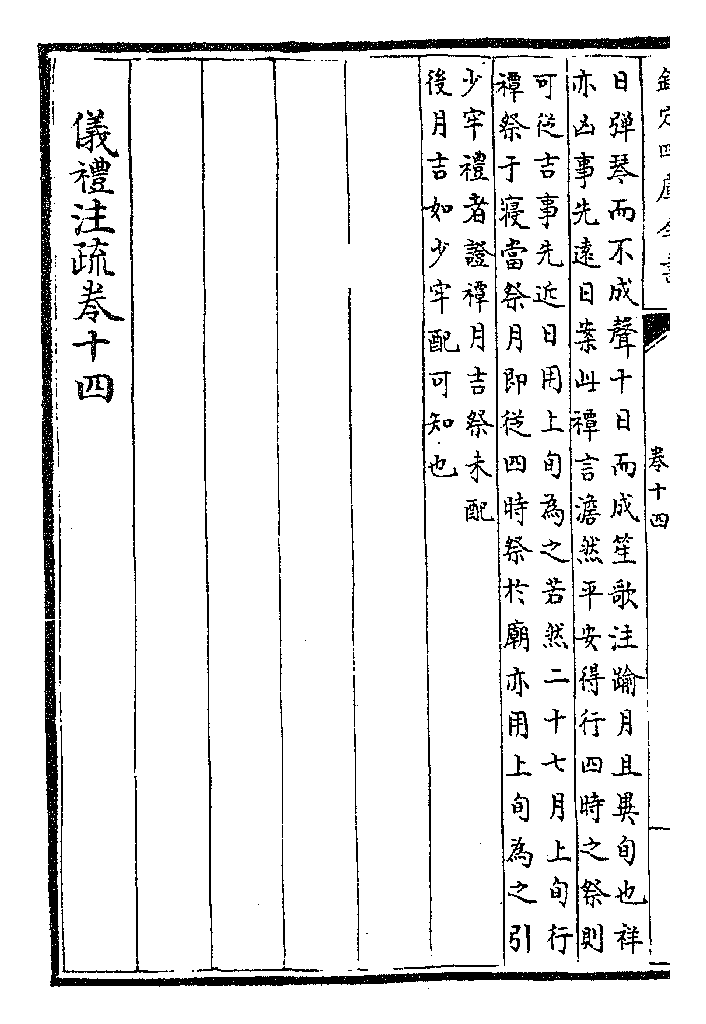 欽定四庫全書
卷十四
日彈琴而不成聲十日而成笙歌注踰月且異旬也祥
亦凶事先遠日案此禫言澹然平安得行四時之祭則
可從吉事先近日用上旬為之若然二十七月上旬行
禫祭于寝當祭月即從四時祭於廟亦用上旬為之引
少牢禮者證禫月吉祭未配
後月吉如少牢配可知也
儀禮注疏卷十四